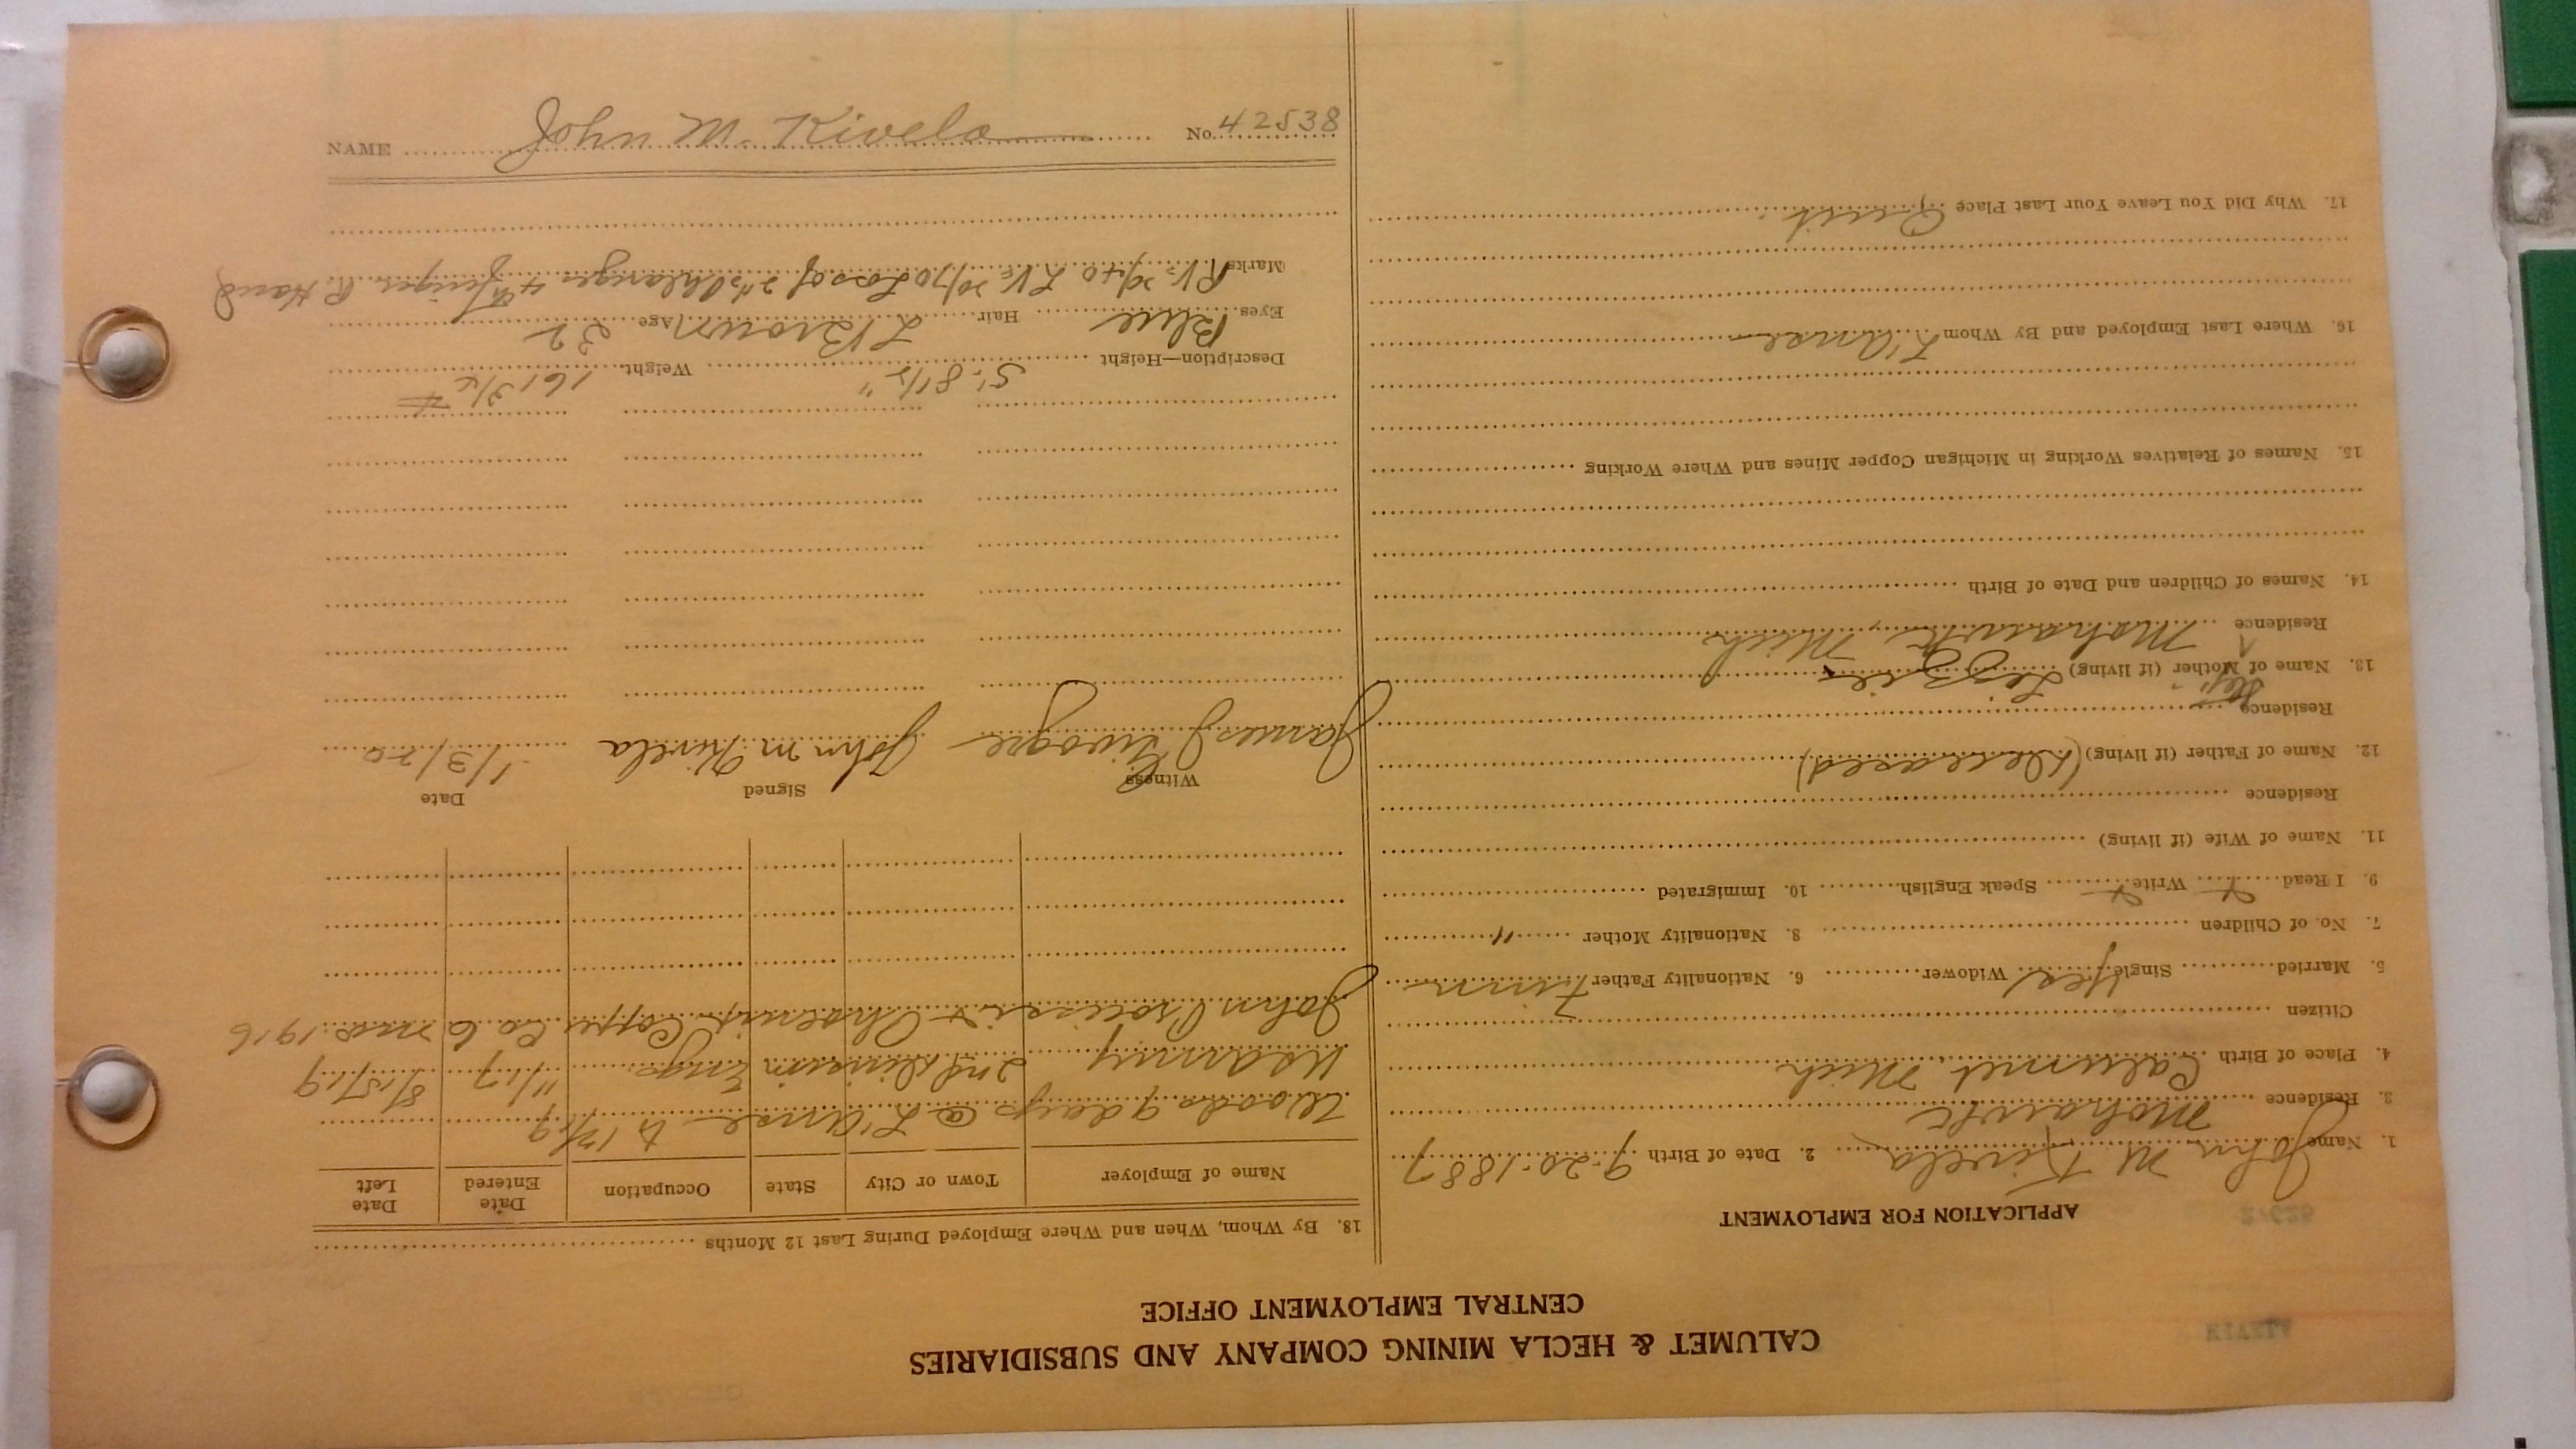 CALUMET & HECLA MINING COMPANY AND SUBSIDIARIES
CENTRAL EMPLOYMENT OFFICE
APPLICATION FOR EMPLOYMENT
1. Name John M Kivela 2. Date of Birth 9-20-1887
3. Residence Mohawk
4. Place of Birth Calumet, Mich
Citizen
5. Married Single Yes Widower 6. Nationality Father Finn
7. No. of Children 8. Nationality Mother "
9. I Read Write Speak English 10. Immigrated
11. Name of Wife (if living)
Residence
12. Name of Father (if living) (Deceased)
Residence
Step
13. Name of Mother (if living) Lizzie
Residence Mohawk, Mich
14. Names of Children and Date of Birth
15. Names of Relatives Working in Michigan Copper Mines and Where Working
16. Where Last Employed and By Whom L'Anse
17. Why Did You Leave Your Last Place Quit
18. By Whom, When and Where Employed During Last 12 Months
Name of Employer Town or City State Occupation Date Entered Date Left
Woods 9 days @ L'Anse to 12/19
2nd Engs 11/17 8/15/19
John Ahmeek Copper Co. 6 mos. 1916
Witness Signed Date
James John M Kivela 1/3/20
Description—Height 5' 8 1/2" Weight 161 3/4 #
Eyes Blue Hair L Brown Age 32
Marks RV 20/40 LV 20/70 Loss of 2nd Phlanges 4th finger R. Hand
NAME John M. Kivela No. 42538